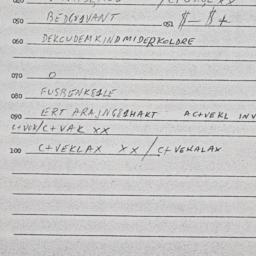 050 BEDGUSVANT 051 $ - $ +
060 DEKCUDEMKINDMIDERKOLDRE
070 O
080 FUSRENKESLE
090 ERT ARAJNGESHAKT AC+VEKL INV
C+VEK/C+VAK XX
100 C+VEKLAX XX / C+ VEKALAX